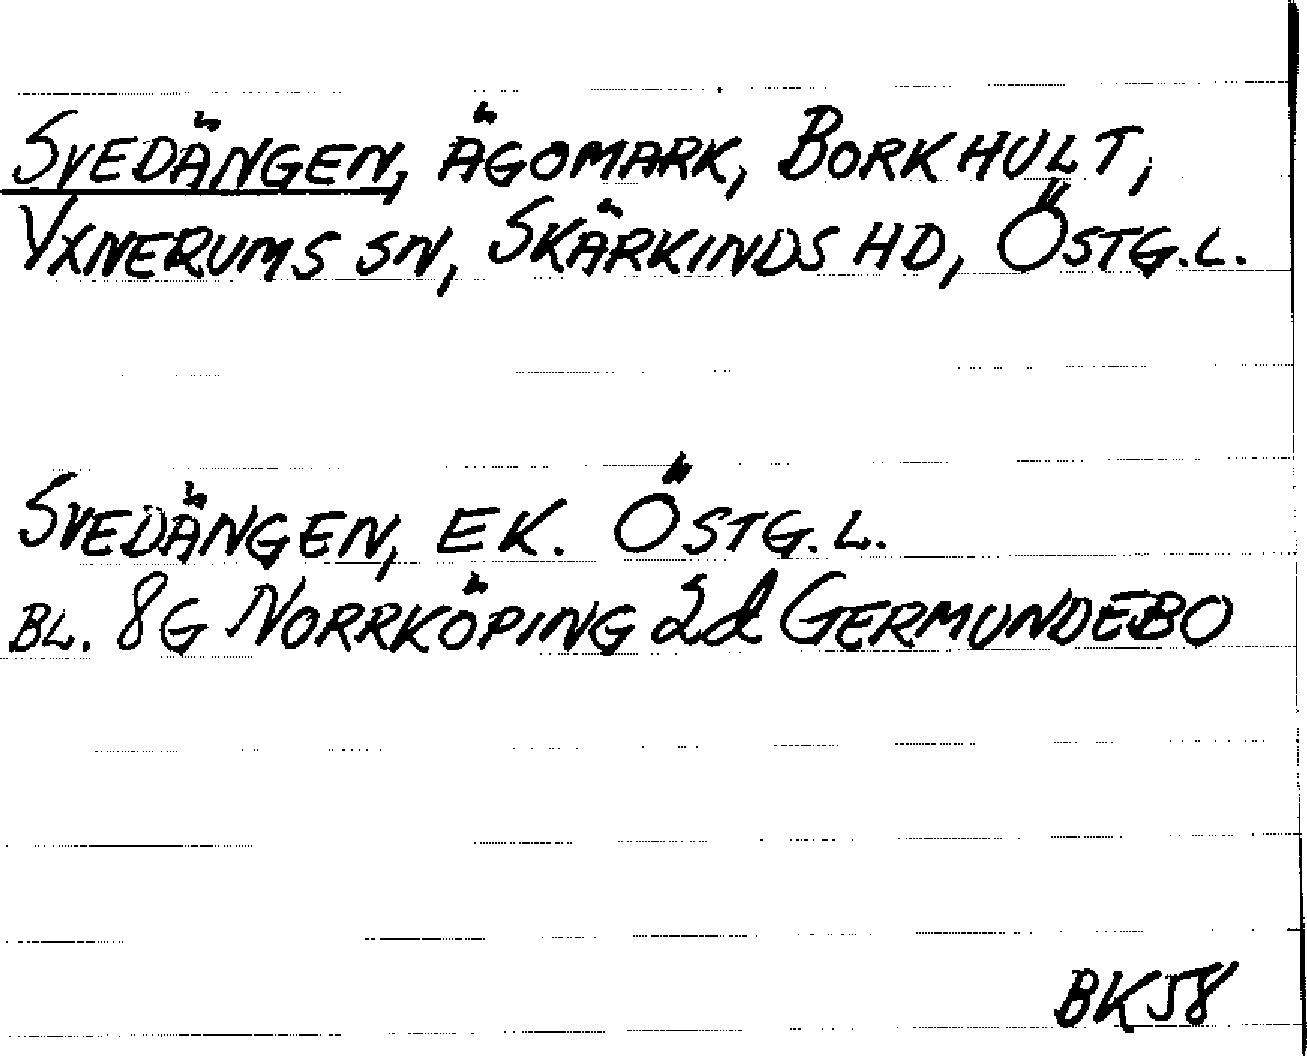 SVEDÄNGEN, ÄGOMARK, BORKHULT,
YXNERUMS SN, SKÄRKINDS HD, ÖSTG.L.
SVEDÄNGEN, EK. ÖSTG.L.
BL. 8G NORRKÖPING 2d GERMUNDEBO
BK58